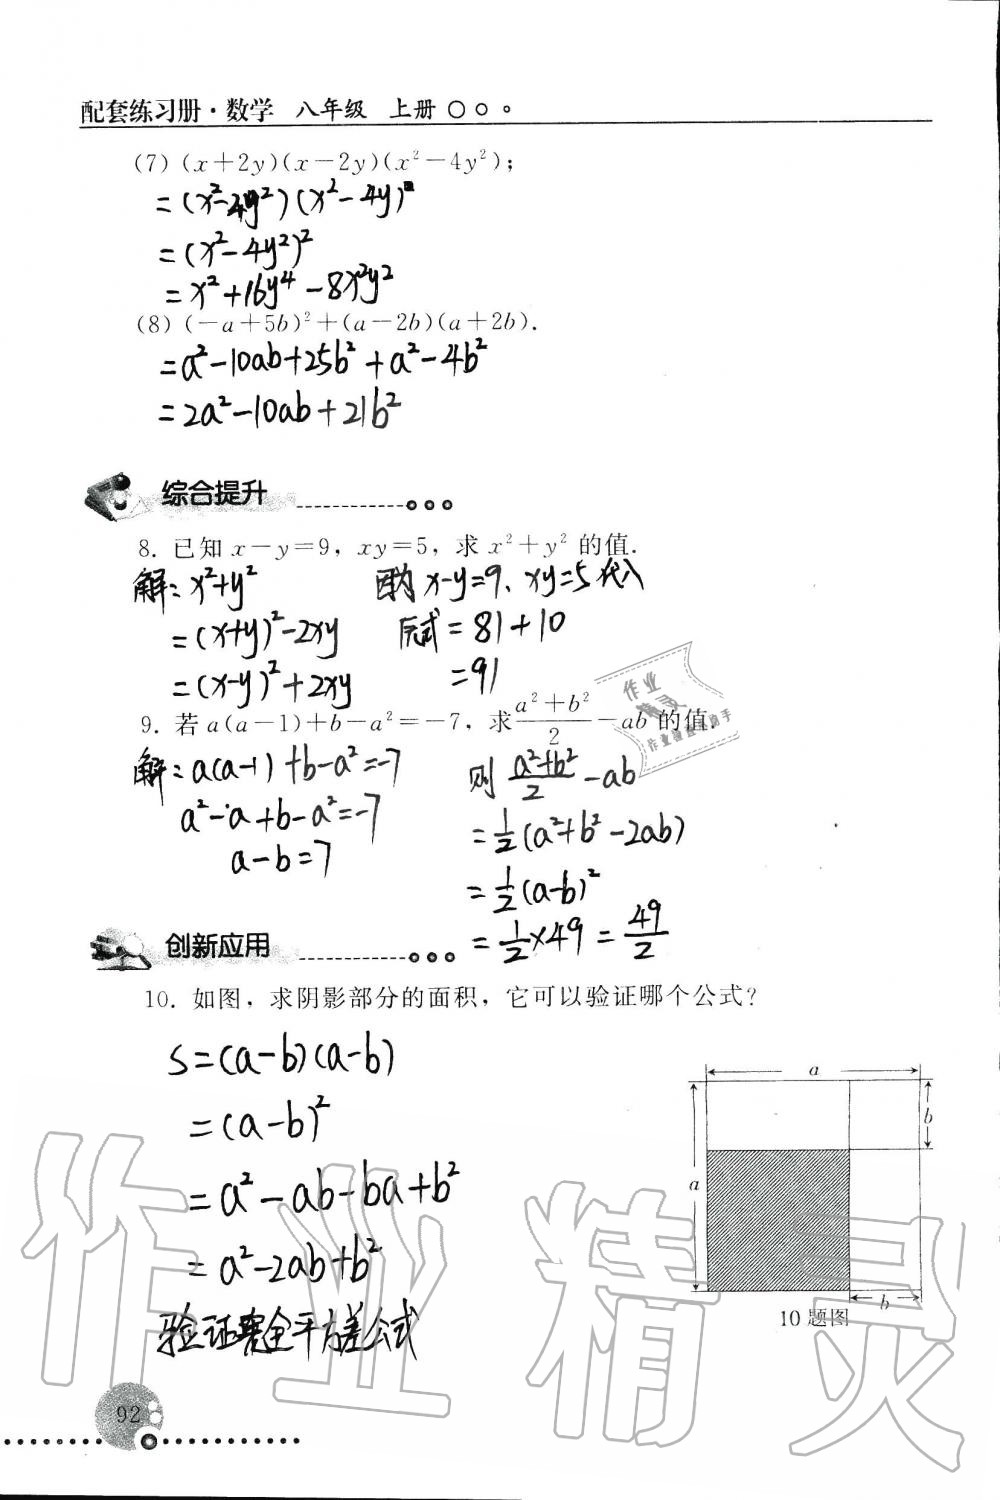 配套练习册·数学 八年级 上册
(7) (x+2y)(x-2y)(x²-4y²);
=(x²-4y²)(x²-4y)²
=(x²-4y²)²
=x²+16y⁴-8x²y²
(8) (-a+5b)²+(a-2b)(a+2b).
=a²-10ab+25b²+a²-4b²
=2a²-10ab+21b²
综合提升
8. 已知 x-y=9, xy=5, 求 x²+y² 的值.
解: x²+y²
=(x+y)²-2xy
=(x-y)²+2xy
因为 x-y=9、xy=5 代入
原式=81+10
=91
作业
精灵
9. 若 a(a-1)+b-a²=-7, 求 (a²+b²)/2 - ab 的值.
解: a(a-1)+b-a²=-7
a²-a+b-a²=-7
a-b=7
则 (a²+b²)/2 - ab
=1/2(a²+b²-2ab)
=1/2(a-b)²
=1/2×49=49/2
创新应用
10. 如图, 求阴影部分的面积, 它可以验证哪个公式?
S=(a-b)(a-b)
=(a-b)²
=a²-ab-ba+b²
=a²-2ab+b²
验证完全平方差公式
a
b
a
b
10 题图
作业精灵
92